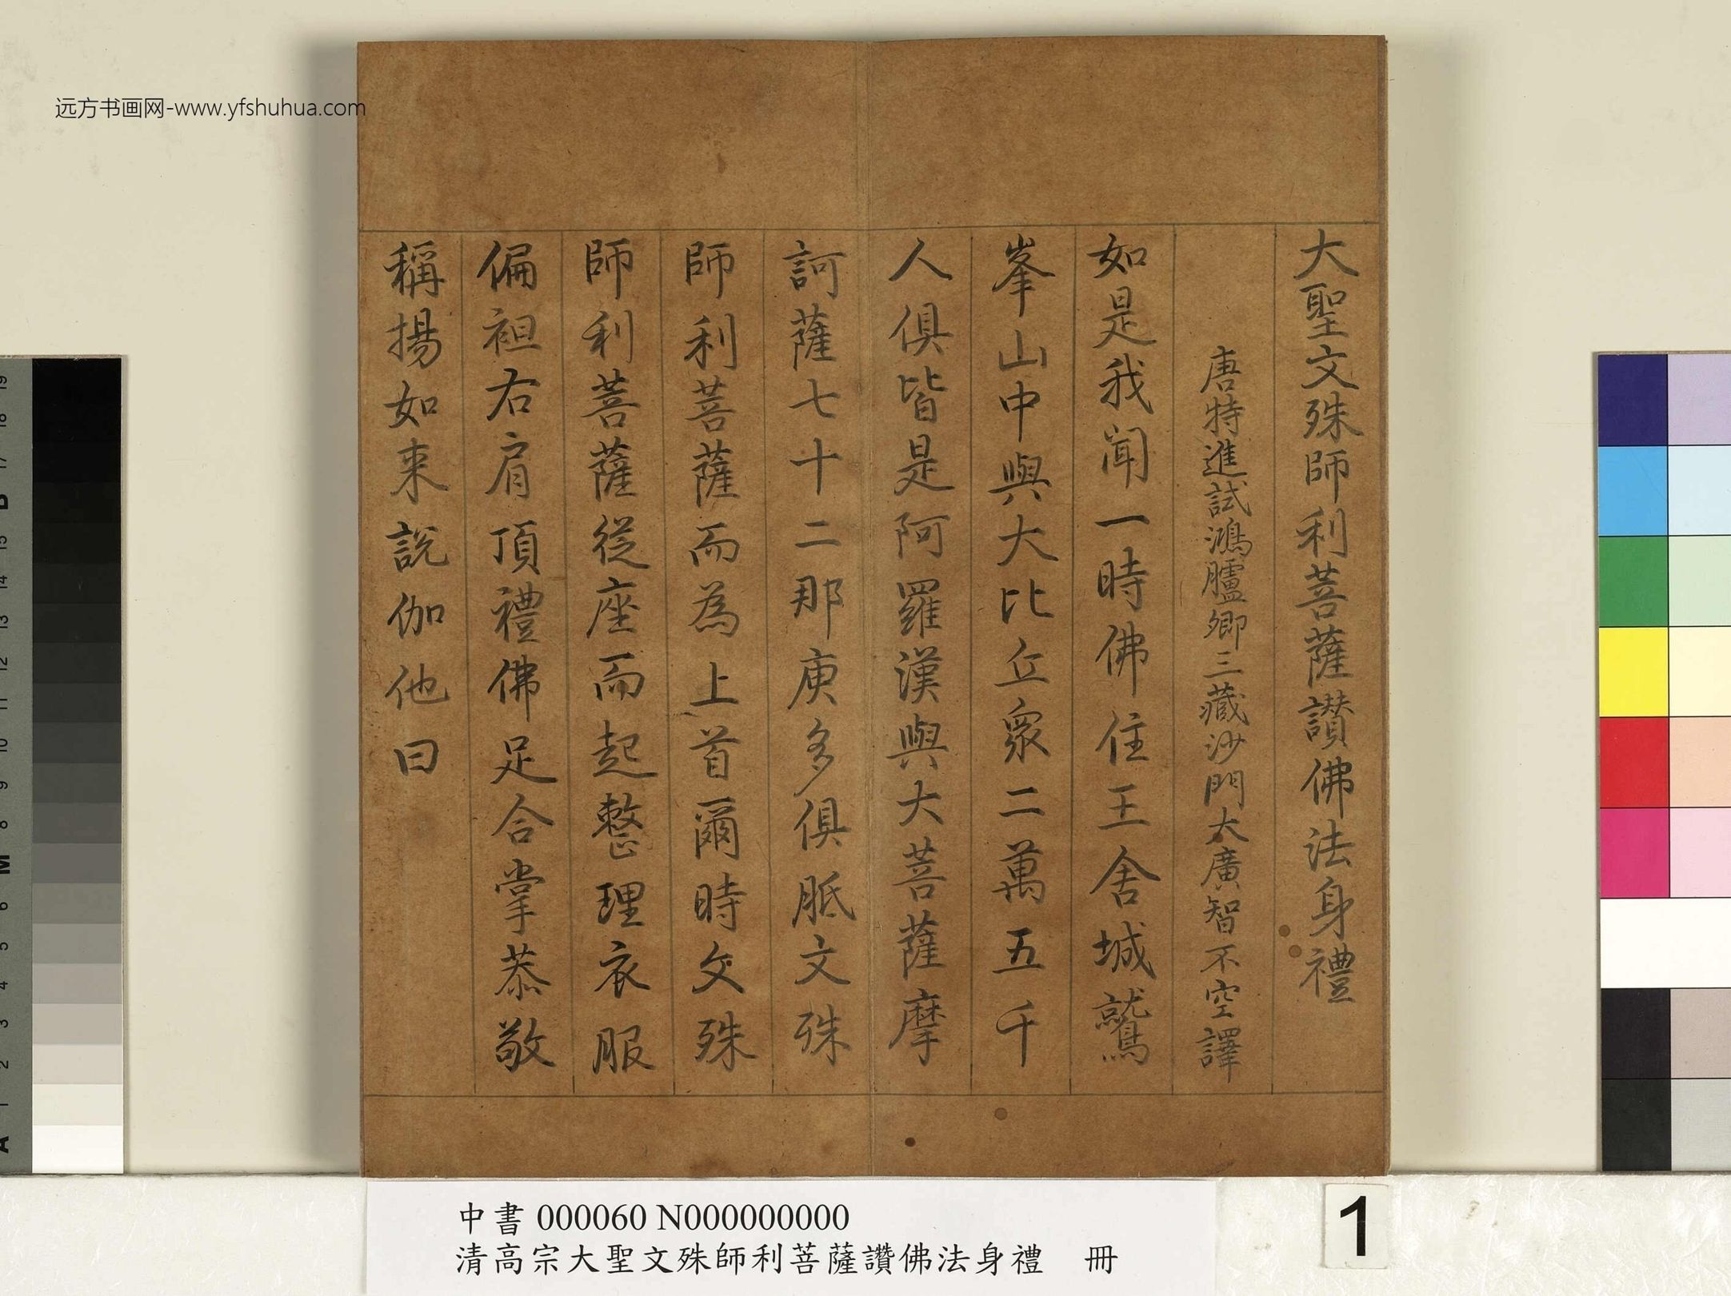 远方书画网-www.yfshuhua.com
大聖文殊師利菩薩讃佛法身禮
唐特進試鴻臚卿三藏沙門大廣智不空譯
如是我聞一時佛住王舍城鷲
峯山中與大比丘衆二萬五千
人俱皆是阿羅漢與大菩薩摩
訶薩七十二那庾多俱胝文殊
師利菩薩而為上首爾時文殊
師利菩薩從座而起整理衣服
偏袒右肩頂禮佛足合掌恭敬
稱揚如来說伽他曰
中書 000060 N000000000
清高宗大聖文殊師利菩薩讚佛法身禮 冊
1
19
18
17
B
15
14
13
12
11
10
9
8
M
6
5
4
3
2
1
A